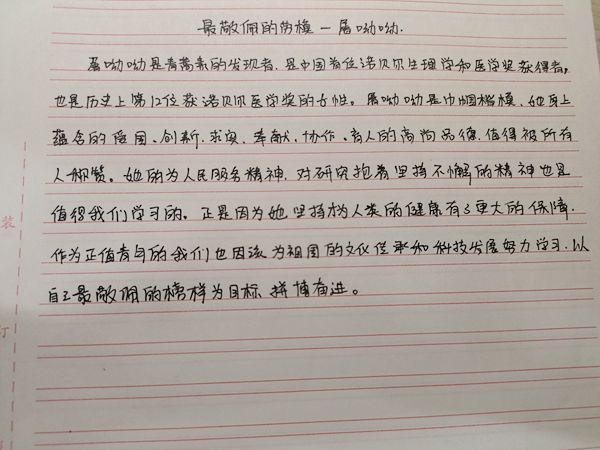 最敬佩的劳模一屠呦呦.
屠呦呦是青蒿素的发现者,是中国首位诺贝尔生理学和医学奖获得者,
也是历史上第12位获诺贝尔医学奖的女性。屠呦呦是巾帼楷模,她身上
蕴含的爱国、创新、求实、奉献、协作、育人的高尚品德,值得被所有
人称赞。她的为人民服务精神,对研究抱着坚持不懈的精神也是
值得我们学习的。正是因为她坚持使人类的健康有了更大的保障.
作为正值青年的我们也因该为祖国的文化传承和科技发展努力学习.以
自己最敬佩的榜样为目标,拼博奋进。
装
订